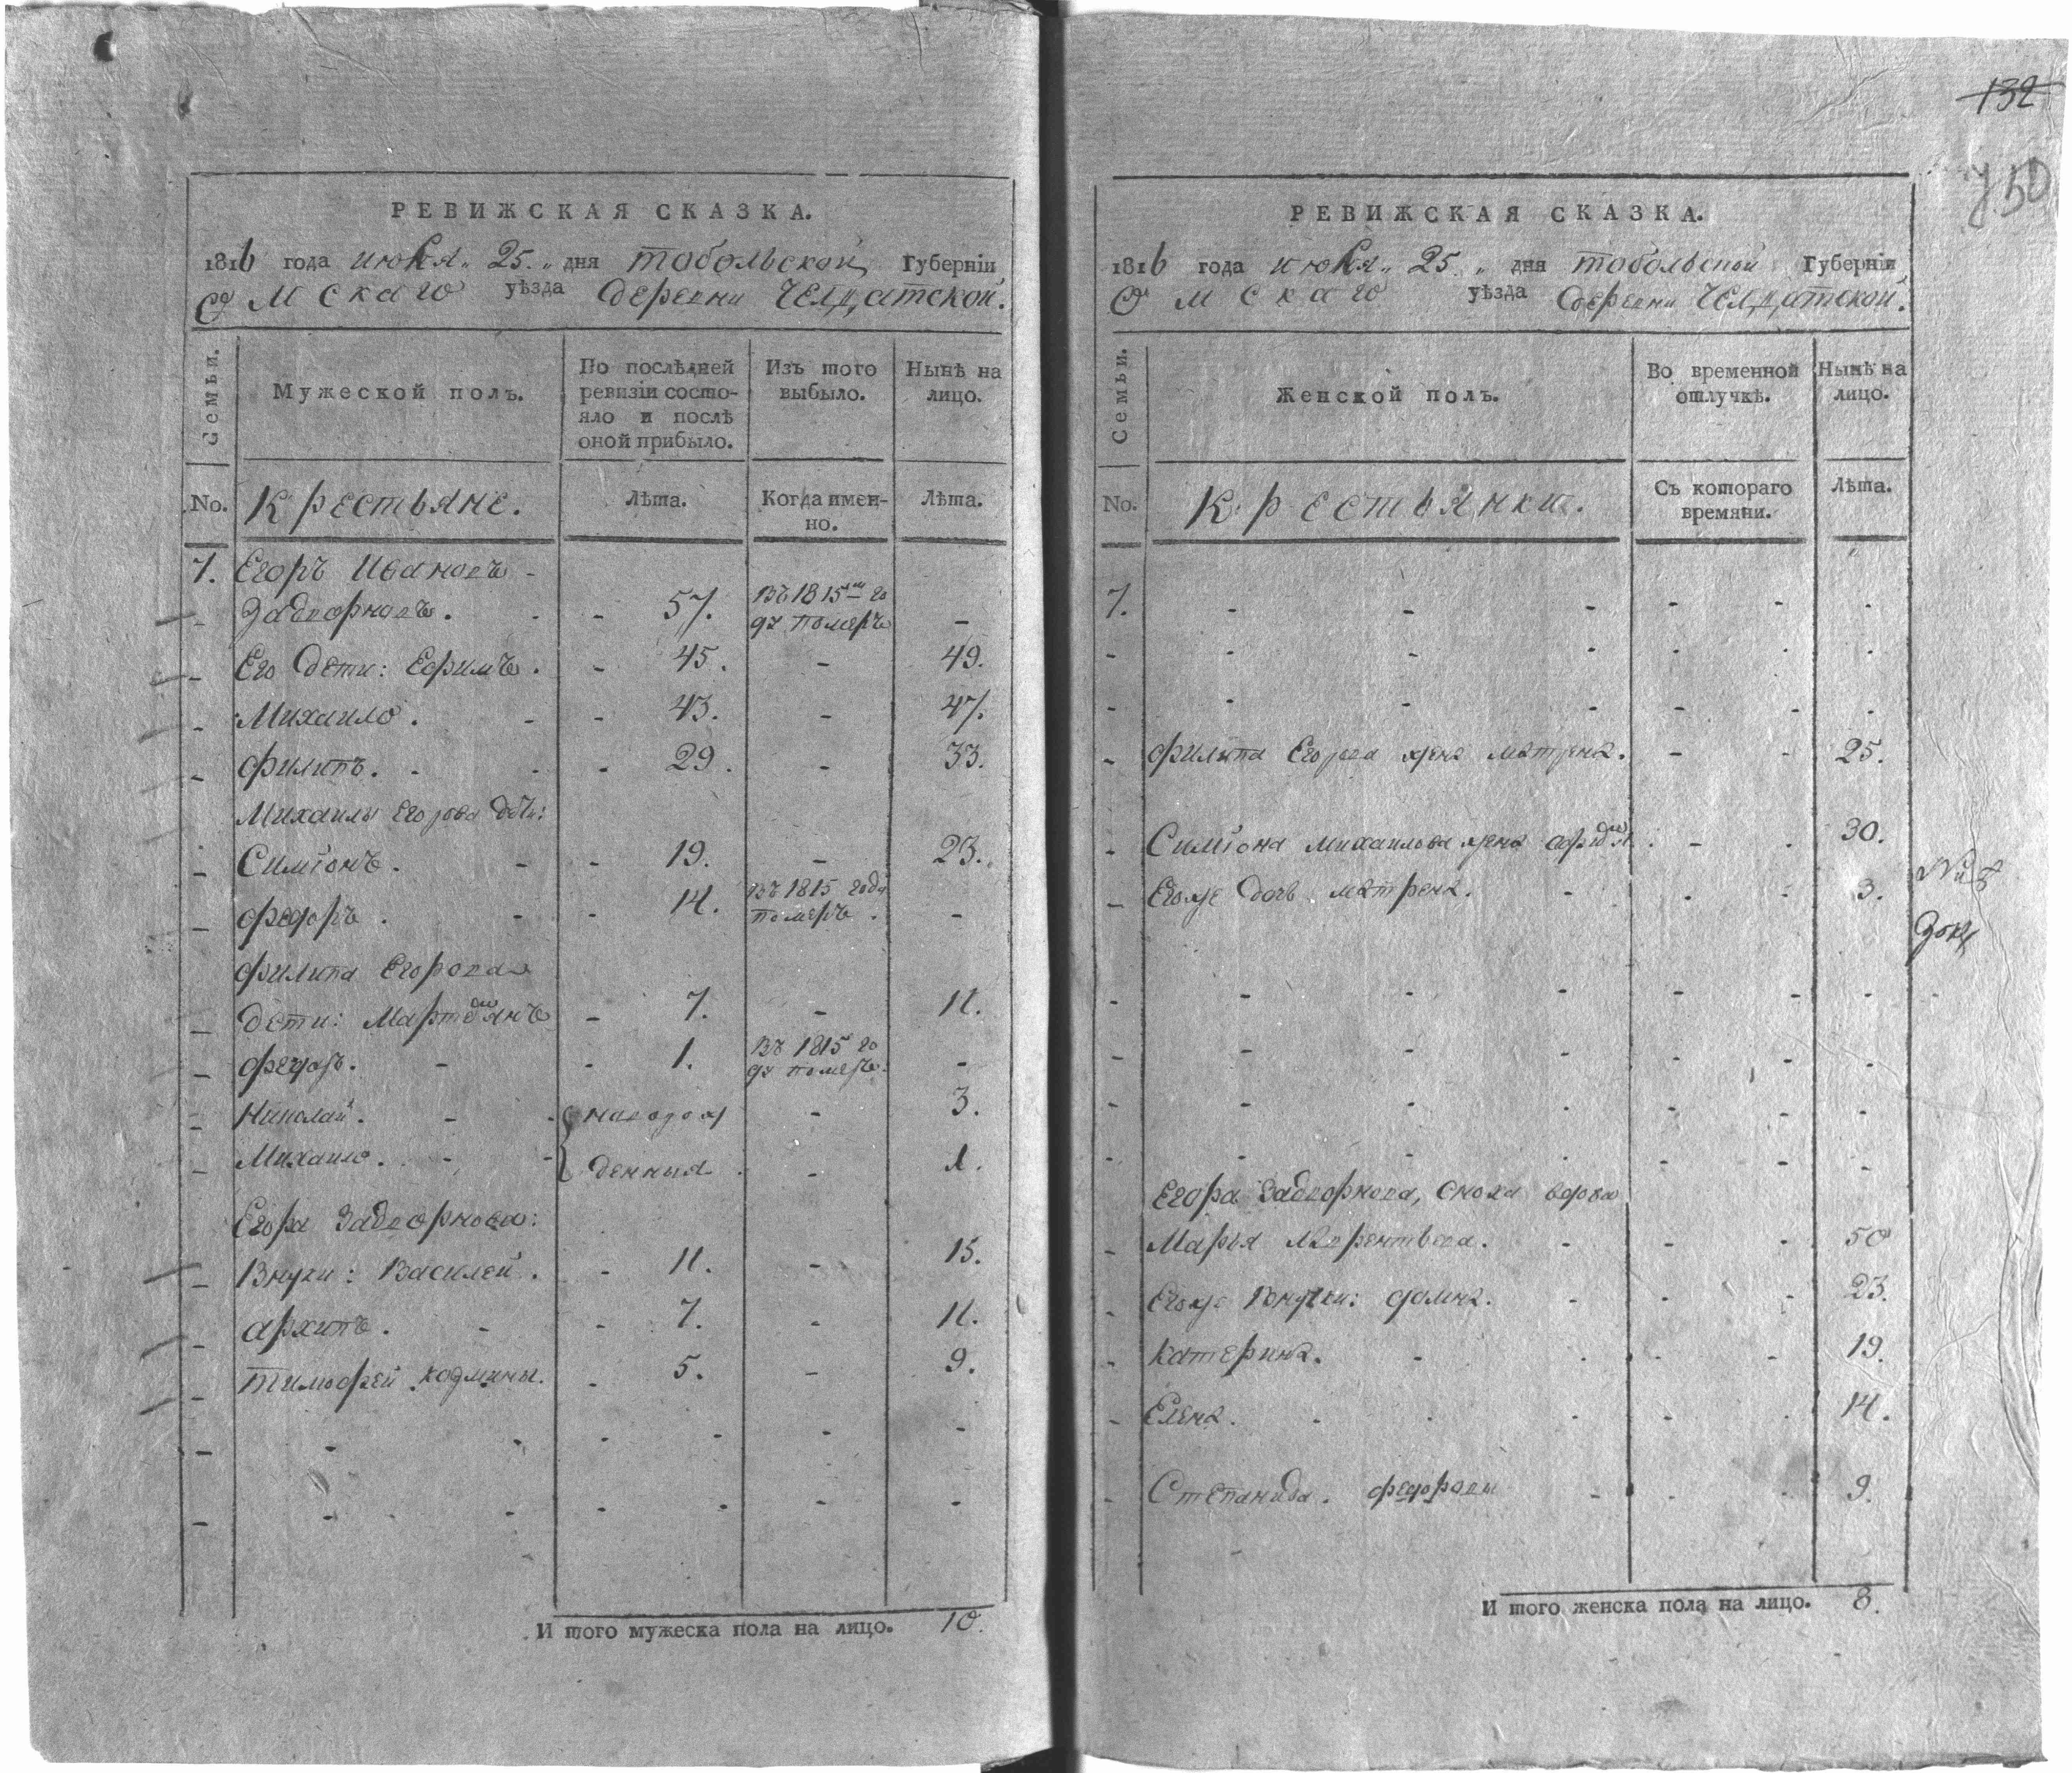 132
РЕВИЖСКАЯ СКАЗКА.
1816 года июня 25. дня тобольской Губерніи
Омскаго уѣзда деревни Челдатской.
Семьи.
Мужеской полъ.
По послѣдней
ревизіи состо-
яло и послѣ
оной прибыло.
Изъ того
выбыло.
Нынѣ на
лицо.
No.
Крестьяне.
Лѣта.
Когда имен-
но.
Лѣта.
7. Егоръ Ивановъ -
Задворновъ. - - 57. въ 1815м го
ду померъ -
Его дети: Ефимъ. - 45. - 49.
Михаило. - - 43. - 47.
Филипъ. - - - 29. - 33.
Михаилы Егорова дѣти:
Симіонъ. - - 19. - 23.
Федоръ. - - 14. въ 1815 года
померъ. -
Филипа Егорова
дети: Мартемдянъ - 7. - 11.
Федоръ. - - 1. въ 1815 го
ду померъ. -
Николай. - - новорож - 3.
Михаило. - - денныя - 1.
Егора Задворнова:
Внуки: Василей. - 11. - 15.
Архипъ. - - 7. - 11.
Тимофей - 5. - 9.
И того мужеска пола на лицо. 10.
РЕВИЖСКАЯ СКАЗКА.
1816 года июня 25 дня тобольской Губерніи
Омскаго уѣзда деревни Челдатской.
Семьи.
Женской полъ.
Во временной
отлучкѣ.
Нынѣ на
лицо.
No.
Крестьянки.
Съ котораго
времяни.
Лѣта.
7.
Филипа Егорова жена матрена. - - 25.
Симіона михаилова жена - - 30.
Егоже дочь матрена. - - - 3.
Егора Задворнова, сноха вдова
Марья Лаврентьева. - - - 50
Егоже внучки: домна. - - - 23.
Катерина. - - - - 19.
Елена. - - - - - 14.
Степанида. федоровы - - - 9.
И того женска пола на лицо. 8.